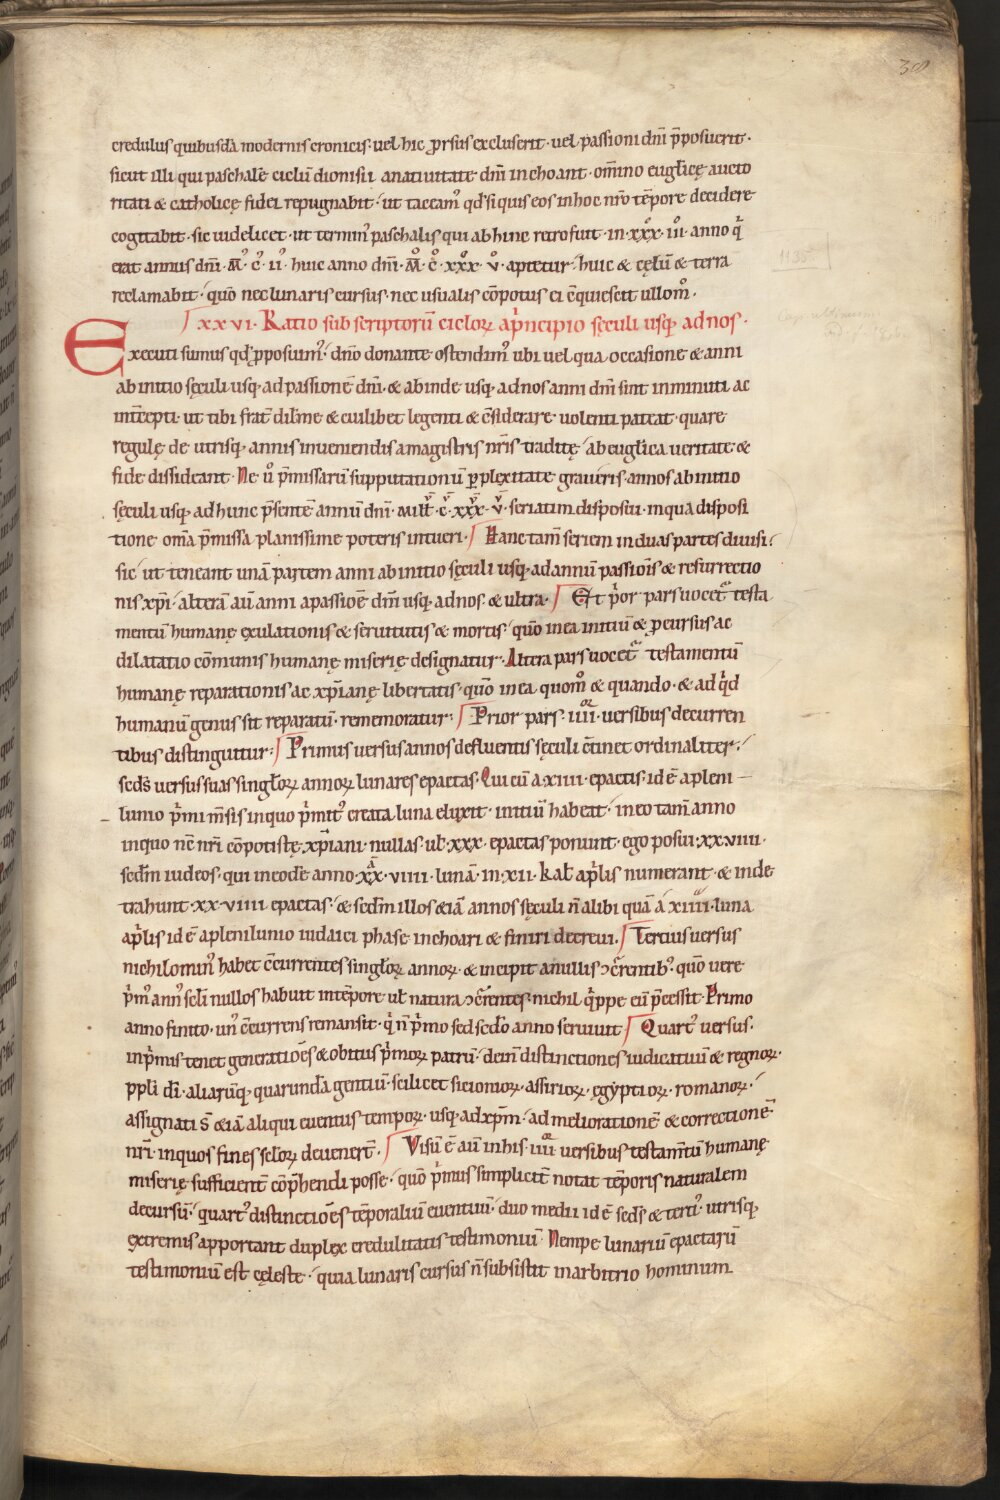 38
credulus quibusdā modernis cronicis · uel hic ꝓrsus excluserit · uel passioni dn̄i p̄posuerit ·
sicut illi qui paschalē ciclū dionisii a natiuitate dn̄i inchoant · om̄ino eugl̄icę aucto
ritati & catholicę fidei repugnabit · ut taceam᷒ qd̄ si quis eos in hoc nr̄o tēpore decidere
cogitabit · sic uidelicet · ut termin᷒ paschalis qui abhinc retro fuit · in · xxx · iii · anno q̄
erat annus dn̄i · M̊ · c̊ · ii̊ · huic anno dn̄i · M̊ · c̊ · xxx̊ · v̊ · aptetur · huic & cęlū & terra
reclamabit · quō nec lunaris cursus · nec usualis cōpotus ei c̄quiescit ullom̊ ·
xxvi · Ratio subscriptorū cicloꝝ a p̄ncipio sęculi usq; ad nos ·
Executi sumus qd̄ ꝓposuim᷒ · dn̄o donante ostendim᷒ ubi uel qua occasione & anni
ab initio sęculi usq; ad passionē dn̄i · & abinde usq; ad nos anni dn̄i sint inminuti ac
int̄cepti · ut tibi frat̄ dil̄me & cuilibet legenti & c̄siderare uolenti pateat · quare
regulę de utrisq; annis inueniendis a magistris nr̄is traditę · ab eugl̄ica ueritate &
fide dissideant · Ne ů p̄missarū supputationū ꝑplexitate graueris · annos ab initio
sęculi usq; ad hunc p̄sentē annū dn̄i · mill̄ · c̄ · xxx̄ · v̄ · seriatim disposui · in qua disposi
tione om̄a p̄missa planissime poteris intueri · Hanc tam̄ seriem in duas partes diuisi ·
sic · ut teneant unā partem anni ab initio sęculi usq; ad annū passiōis & resurrectio
nis xp̄i · alterā aū anni a passioē dn̄i usq; ad nos & ultra · Et p̄or pars uocet᷒ testa
mentū humanę exulationis & seruitutis & mortis · quō in ea initiū & ꝓcursus ac
dilatatio cōmunis humanę miserię designatur · Altera pars uocet᷒ testamentū
humanę reparationis ac xp̄ianę libertatis · quō in ea quom̊ & quando · & ad q̄d
humanū genus sit reparatū · rememoratur · Prior pars · iiii · uersibus decurren
tibus distinguitur · Primus uersus annos defluentis sęculi c̄tinet ordinaliter ·
sed̄s uersus suas singl̄oꝝ annoꝝ lunares epactas · Qui cū a xiiii · epactis · id ē a pleni
lunio p̄mi m̄sis in quo p̄mit᷒ creata luna eluxit · initiū habeat · in eo tam̄ anno
in quo nc̄ nr̄i cōpotistę xp̄iani nullas · ut̄ · xxx · epactas ponunt · ego posui · xx · viiii ·
sed̄m iudeos · qui in eodē anno · xx · viiii · lunā · in · xii · kal̄ ap̄lis numerant & inde
trahunt · xx · viiii epactas · & sed̄m illos &iā annos sęculi n̄ alibi quā a xiiii · luna
ap̄lis id ē a plenilunio iudaici phase inchoari & finiri decreui · Tercius uersus
nichilomin᷒ habet c̄currentes singl̄oꝝ annoꝝ · & incipit a nullis ɔc̄rentib᷒ · quō uere
p̄m᷒ ann᷒ sc̄li nullos habuit in tēpore ut̄ natura ɔc̄rentes · nichil q̄ppe eū p̄cessit · Primo
anno finito · un᷒ c̄currens remansit · q̄ n̄ p̄mo sed sed̄o anno seruiuit · Quart᷒ uersus ·
inp̄mis tenet generatiōes & obitus p̄moꝝ patrū · dein̄ distinctiones iudicatiuū & regnoꝝ ·
ppl̄i dī · aliarūq; quarundā gentiū · scilicet sicionioꝝ · assirioꝝ · egyptioꝝ · romanoꝝ ·
assignati s̄ &iā aliqui euentus tempoꝝ · usq; ad xp̄m · ad meliorationē & correctionē
nr̄i · in quos fines sc̄loꝝ deuener̄t · Visū ē aū in his · iiii uersibus testam̄tū humanę
miserię sufficient̄ cōp̄hendi posse · quō p̄mus simplicit̄ notat tēporis naturalem
decursū · quart᷒ distinctiōes tēporaliū euentuū · duo medii id ē sed̄s & terti᷒ utrisq;
extremis apportant duplex credulitatis testimoniū · Nempe lunariū epactarū
testimoniū est cęleste · quia lunaris cursus n̄ subsistit in arbitrio hominum